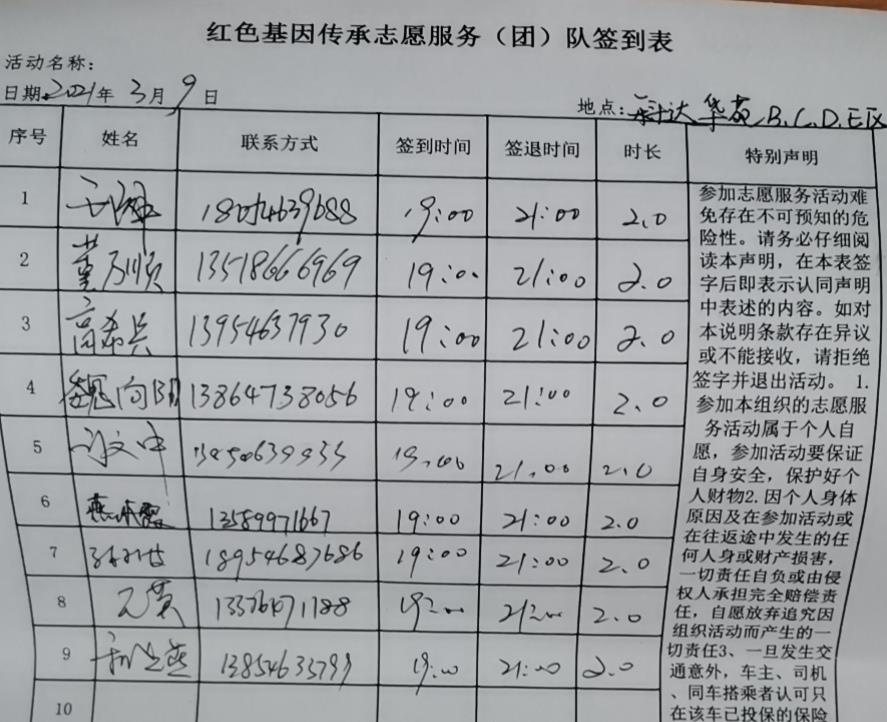 红色基因传承志愿服务（团）队签到表
活动名称：
日期：2021年 3月 9日
地点：科达华苑B.C.D.E区
序号 姓名 联系方式 签到时间 签退时间 时长 特别声明
1 19:00 21:00 2.0
2 董乃顺 13518666969 19:00 21:00 2.0
3 高希兵 13954637930 19:00 21:00 2.0
4 魏向阳 13864738056 19:00 21:00 2.0
5 许文中 19:00 21:00 2.0
6 13589971667 19:00 21:00 2.0
7 18954687686 19:00 21:00 2.0
8 19:00 21:00 2.0
9 19:00 21:00 2.0
10
参加志愿服务活动难
免存在不可预知的危
险性。请务必仔细阅
读本声明，在本表签
字后即表示认同声明
中表述的内容。如对
本说明条款存在异议
或不能接收，请拒绝
签字并退出活动。 1.
参加本组织的志愿服
务活动属于个人自
愿，参加活动要保证
自身安全，保护好个
人财物2.因个人身体
原因及在参加活动或
在往返途中发生的任
何人身或财产损害，
一切责任自负或由侵
权人承担完全赔偿责
任，自愿放弃追究因
组织活动而产生的一
切责任3、一旦发生交
通意外，车主、司机
、同车搭乘者认可只
在该车已投保的保险